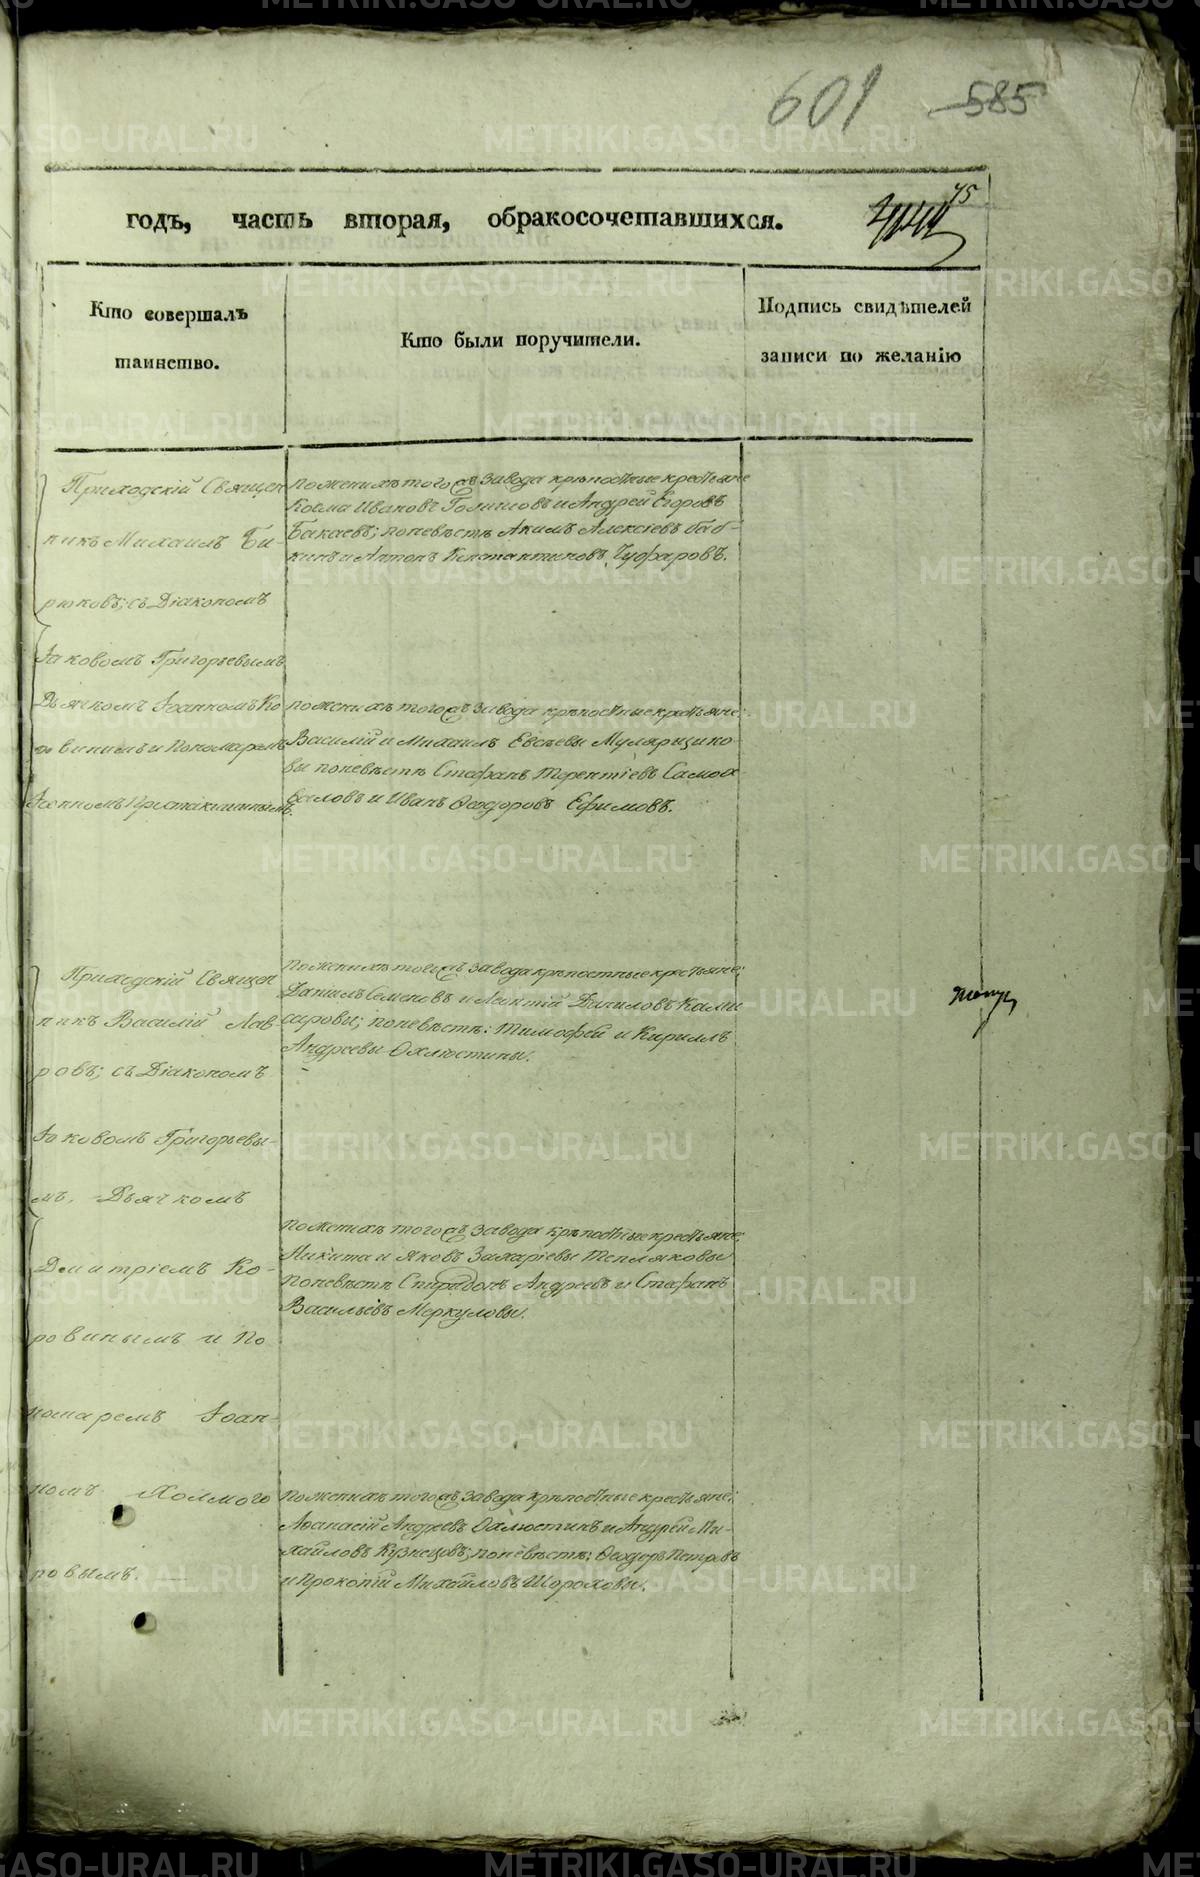 601 585
годъ, часть вторая, обракосочетавшихся. 75
Кто совершалъ
таинство.
Кто были поручители.
Подпись свидѣтелей
записи по желанію
Приходскій Священ
никъ Михаилъ Би-
рюковъ; съ Діакономъ
Іаковомъ Григорьевымъ
Дьячкомъ Іоанномъ Ко
и Пономаремъ
поженихѣ того завода крѣпостные крестьяне
Козма Ивановъ и Андрей Егоровъ
Бакаевъ; поневѣстѣ Акимъ Алексіевъ Баб-
кинъ и Антонъ Константиновъ Чуфаровъ.
поженихѣ того завода крѣпостные крестьяне;
Василій и Михаилъ Евсѣевы Мулярщико-
вы поневѣстѣ Стефанъ Терентіевъ
и Иванъ Ѳеодоровъ Ефимовъ.
Приходскій Священ
никъ Василій Лав-
ровъ; съ Діакономъ
Іаковомъ Григорьевы-
мъ, Дьячкомъ
Димитріемъ Ко-
ровинымъ и По
номаремъ Іоан-
номъ Холмого
ровымъ.
поженихѣ того завода крѣпостные крестьяне;
Даніилъ Семеновъ и Леонтій Даниловъ
поневѣстѣ: Тимофей и Кириллъ
Андреевы Охлюстины.
поженихѣ того завода крѣпостные крестьяне;
Никита и Яковъ Захаріевы Тепляковы
поневѣстѣ Спиридонъ Андреевъ и Стефанъ
Васильевъ Меркуловы.
поженихѣ того завода крѣпостные крестьяне;
Аѳанасій Андреевъ Охлюстинъ и Андрей Ми-
хайловъ Кузнецовъ; поневѣстѣ: Ѳеодоръ Петровъ
и Прокопій Михайловъ Шороховы.
METRIKI.GASO-URAL.RU